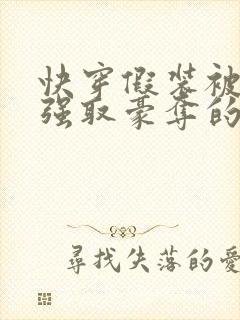 快穿假装被
强取豪夺的
尋找失落的愛